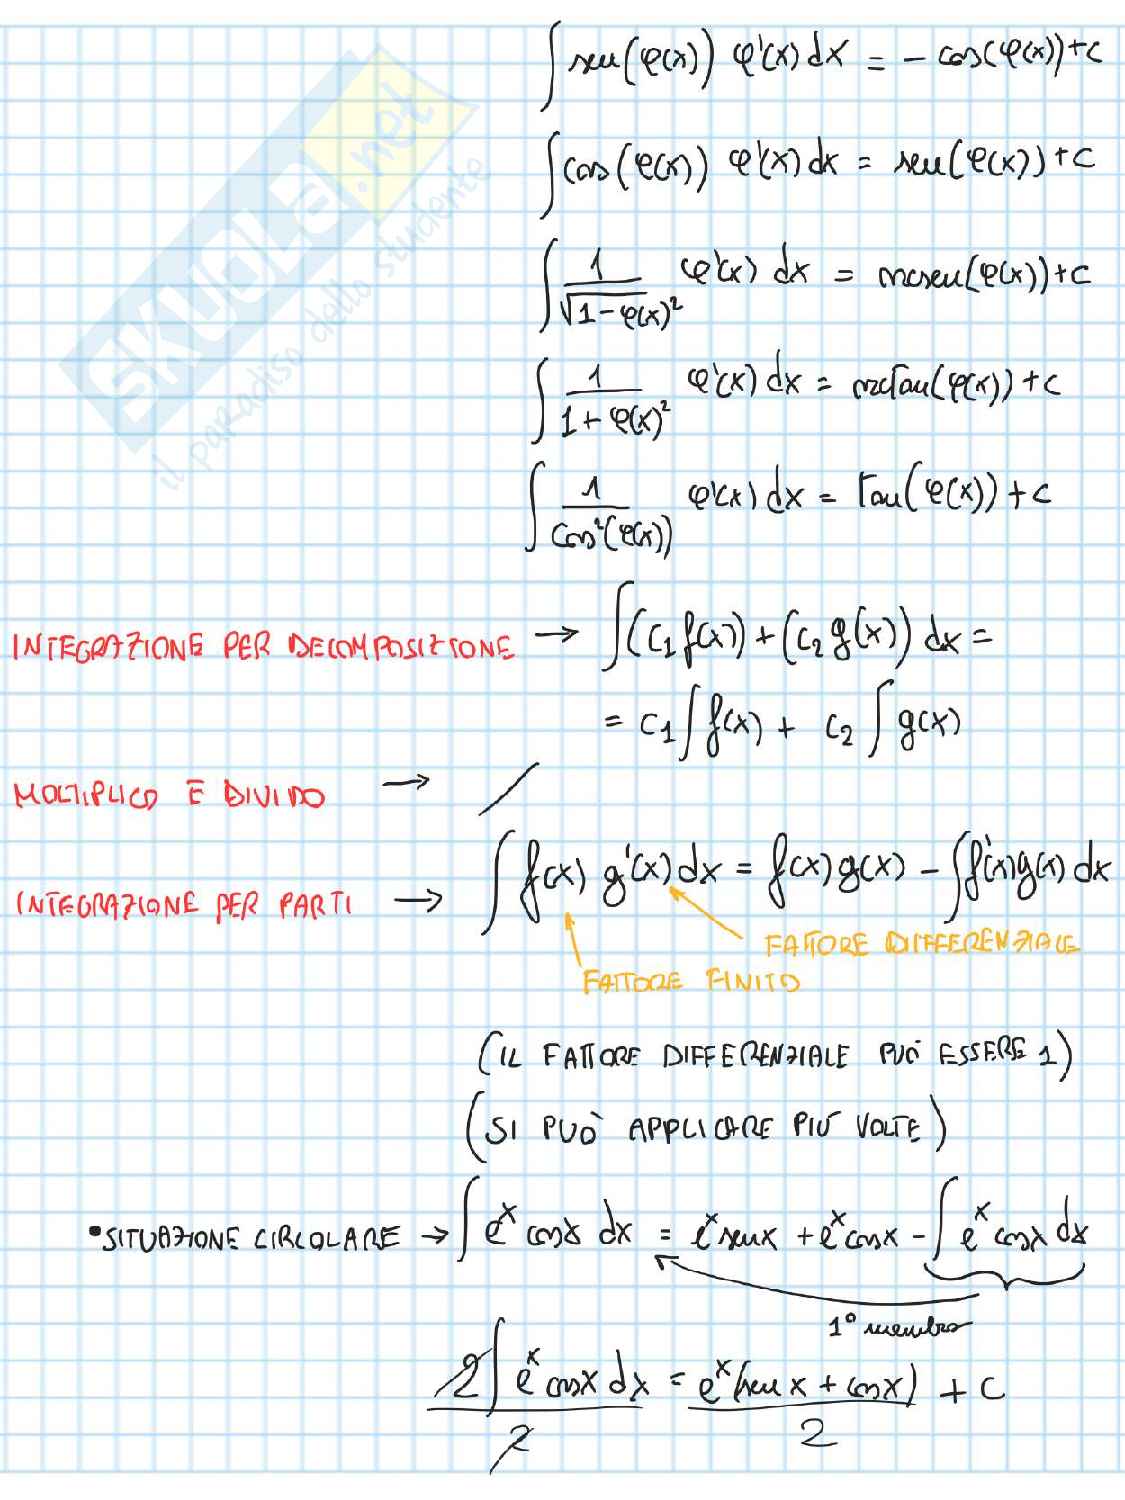 ∫ sen(φ(x)) φ'(x) dx = - cos(φ(x)) + c
∫ cos(φ(x)) φ'(x) dx = sen(φ(x)) + c
∫ 1/√(1-φ(x)²) φ'(x) dx = arcsen(φ(x)) + c
∫ 1/(1+φ(x)²) φ'(x) dx = arctan(φ(x)) + c
∫ 1/cos²(φ(x)) φ'(x) dx = tan(φ(x)) + c
SKUOLA.net
il paradiso dello studente
INTEGRAZIONE PER DECOMPOSIZIONE → ∫(c₁ f(x)) + (c₂ g(x)) dx =
= c₁ ∫ f(x) + c₂ ∫ g(x)
MOLTIPLICO E DIVIDO → /
INTEGRAZIONE PER PARTI → ∫ f(x) g'(x) dx = f(x) g(x) - ∫ f'(x) g(x) dx
FATTORE DIFFERENZIALE
FATTORE FINITO
(IL FATTORE DIFFERENZIALE PUÒ ESSERE 1)
(SI PUÒ APPLICARE PIÙ VOLTE)
• SITUAZIONE CIRCOLARE → ∫ eˣ cosx dx = eˣ senx + eˣ cosx - ∫ eˣ cosx dx
1° membro
2∫ eˣ cosx dx / 2 = eˣ(sen x + cosx) / 2 + c